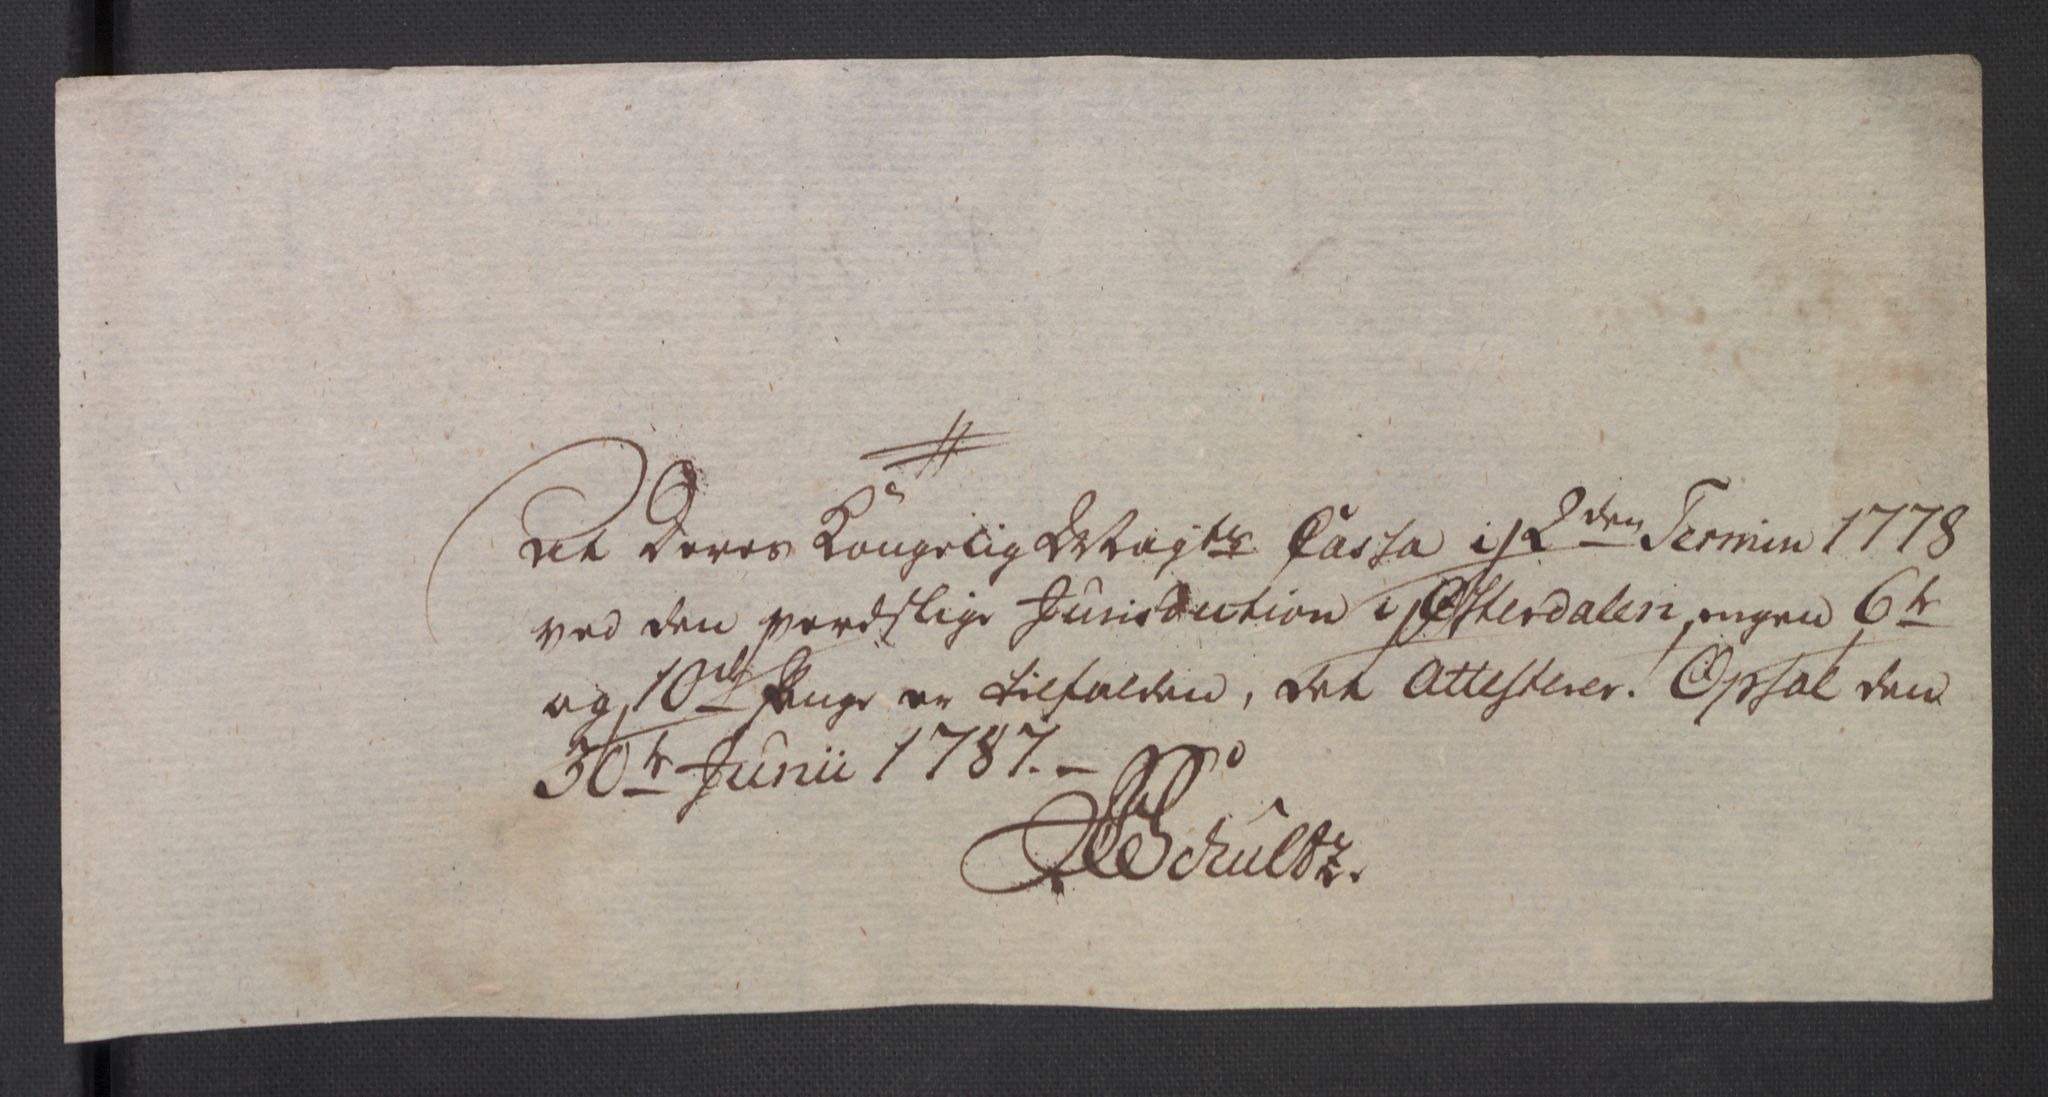 At Deres Kongelig Mayts Cassa i 2den Termin 1778
ved den verdslige Jurisdiction i Østerdalen, ingen 6te
og 10de Penge er tilfalden, det Attesterer. Opsal den
30te Junii 1787.-
Schultz.